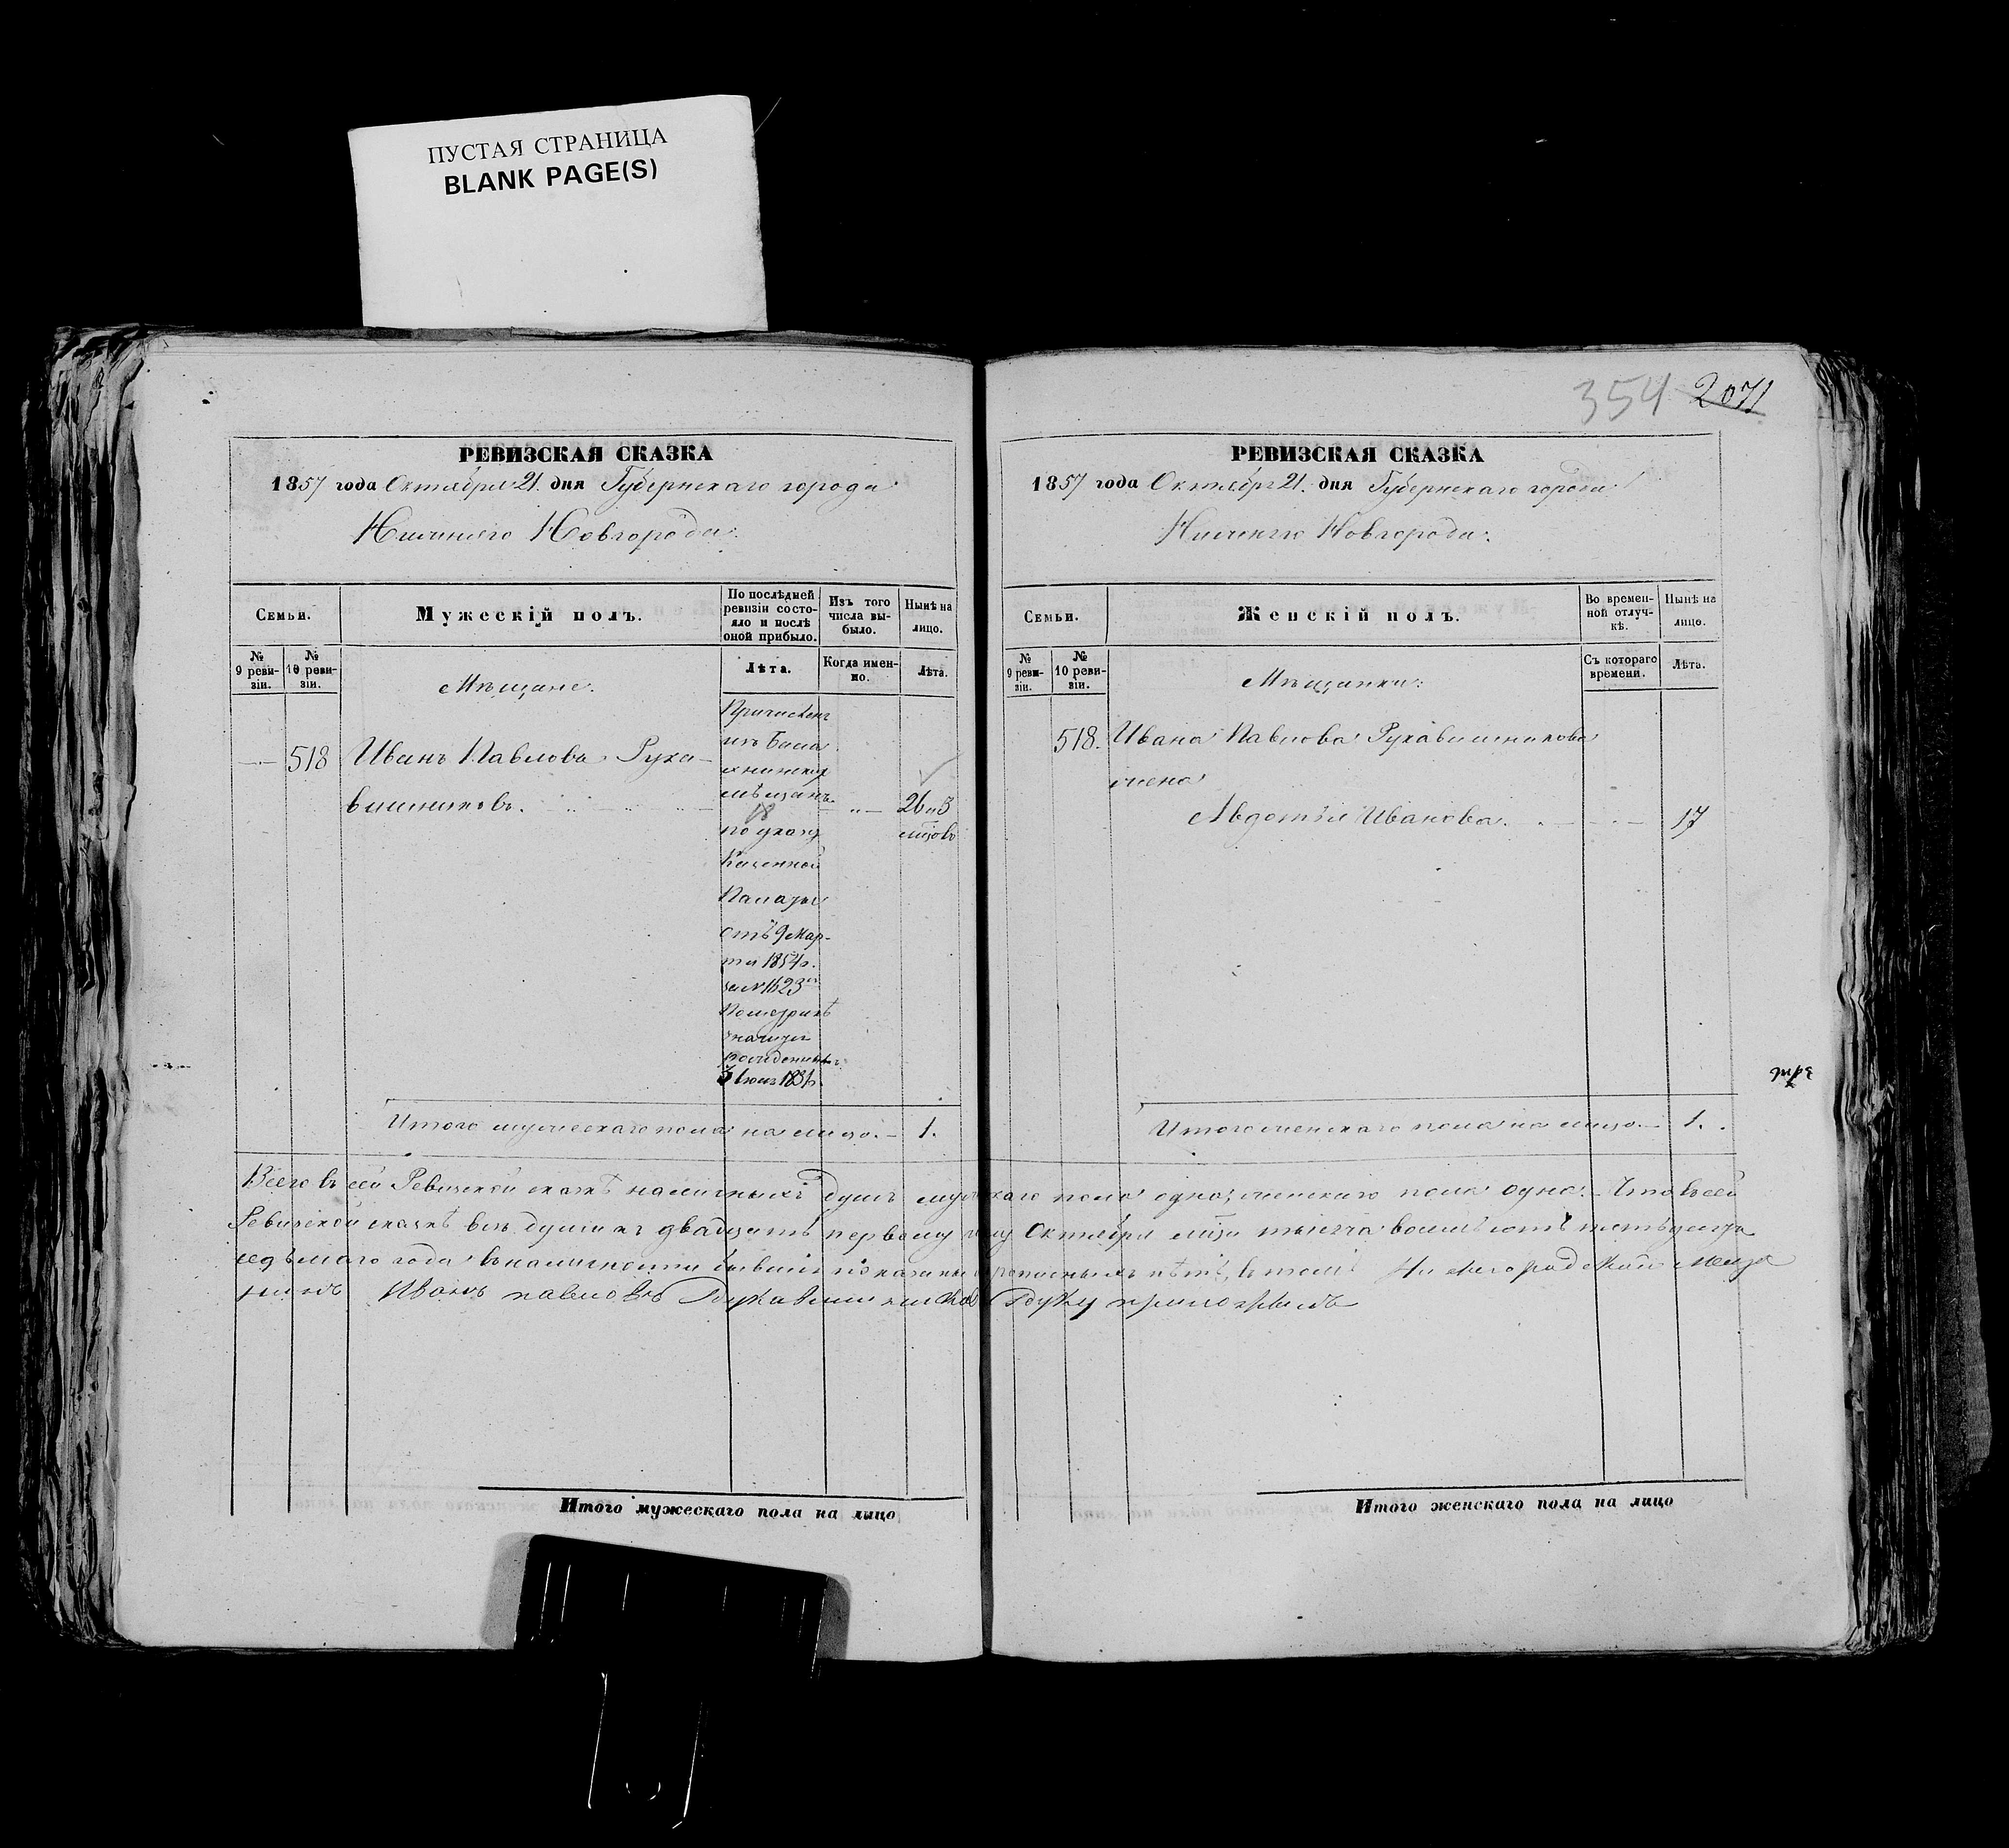 ПУСТАЯ СТРАНИЦА
BLANK PAGE(S)
РЕВИЗСКАЯ СКАЗКА
1857 года Октября 21. дня Губернскаго города
Нижняго Новгорода.
Семьи.
Мужескій полъ.
По послѣдней
ревизіи состо-
яло и послѣ
оной прибыло.
Изъ того
числа вы-
было.
Нынѣ на
лицо.
№
9 реви-
зіи.
№
10 реви-
зіи.
Мѣщане.
Лѣта.
Когда имен-
но.
Лѣта.
518
Иванъ Павловъ Рука-
вишниковъ.
Причисленъ
изъ Бала
хнинских
мѣщанъ
18
по указу
Казенной
Палаты
отъ 9 Мар-
та 1854 г.
за №1623
По метрикѣ
рожденным
26 и 3
мѣсцовъ
Итого мужескаго пола на лицо. 1.
354 2071
РЕВИЗСКАЯ СКАЗКА
1857 года Октября 21. дня Губернскаго города
Нижняго Новгорода.
Семьи.
Женскій полъ.
Во времен-
ной отлуч-
кѣ.
Нынѣ на
лицо.
№
9 реви-
зіи.
№
10 реви-
зіи.
Мѣщанки.
Съ котораго
времени.
Лѣта.
518. Ивана Павлова Рукавишникова
жена
Авдотья Иванова. 17
Итого женскаго пола на лицо. 1.
Всего въ сей Ревизской сказкѣ наличныхъ душъ мужескаго пола одна, женскаго пола одна. Что въ сей
Ревизской сказкѣ всѣ души къ двадцать первому Октября тысяча восемьсотъ пятьдесятъ
седьмаго года въ наличности бывшіе показаны и прописныхъ нѣтъ, въ томъ Нижегородскай меща
нинъ Иванъ павловъ Рукавишников Руку приложилъ
Итого мужескаго пола на лицо
Итого женскаго пола на лицо